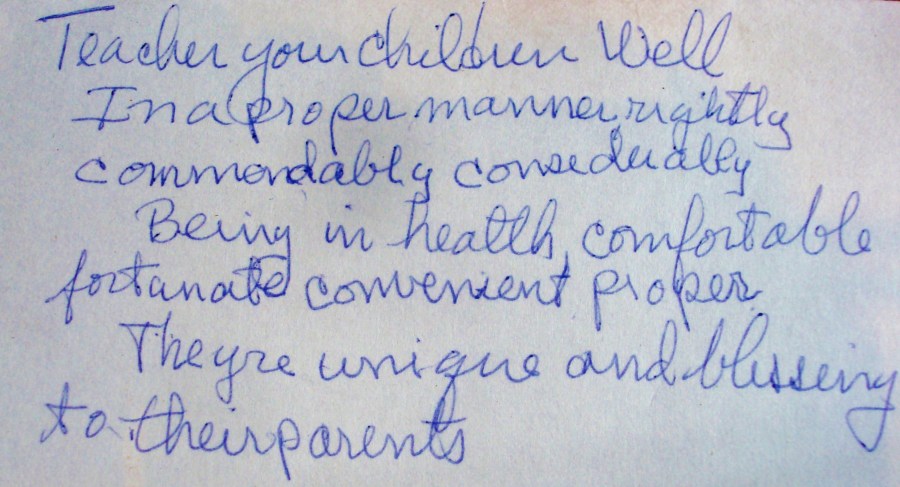 Teacher your children Well
In a proper manner, rightly
commendably considerably
Being in health, comfortable
fortanate convenient proper
Theyre unique and blesseing
to their parents